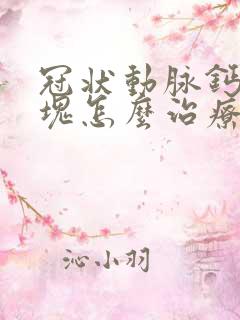 冠状動脉鈣
塊怎麼治療
沁小羽